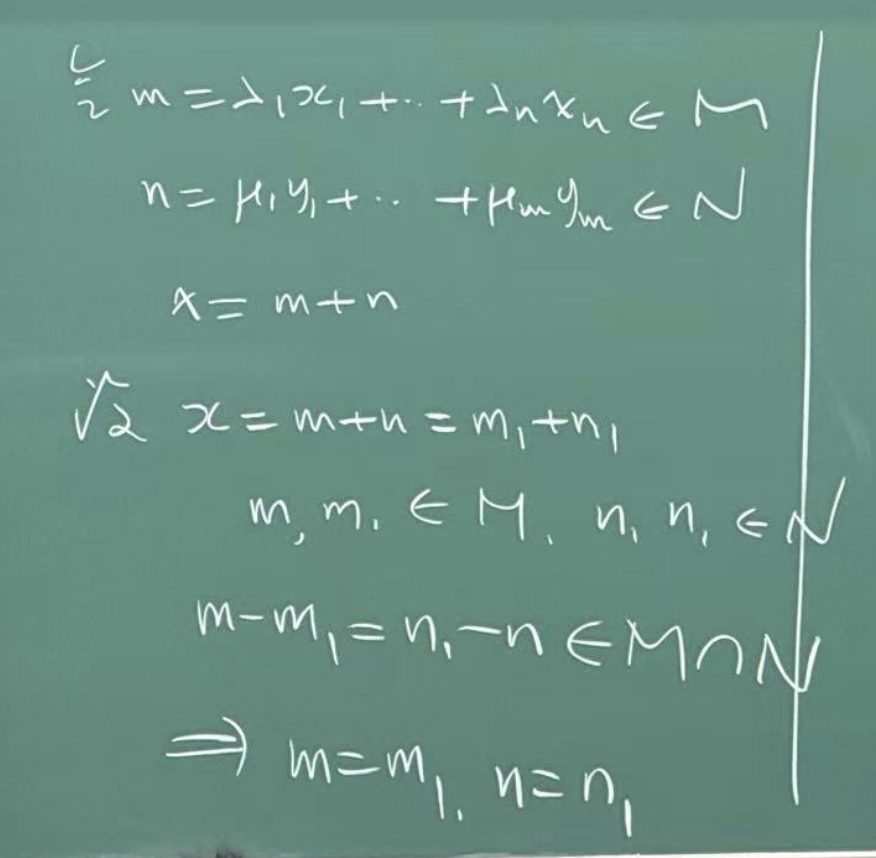 m = λ₁x₁ + ·· + λₙxₙ ∈ M
n = μ₁y₁ + ·· + μₘyₘ ∈ N
x = m + n
x = m + n = m₁ + n₁
m, m₁ ∈ M, n, n₁ ∈ N
m - m₁ = n₁ - n ∈ M ∩ N
⇒ m = m₁, n = n₁